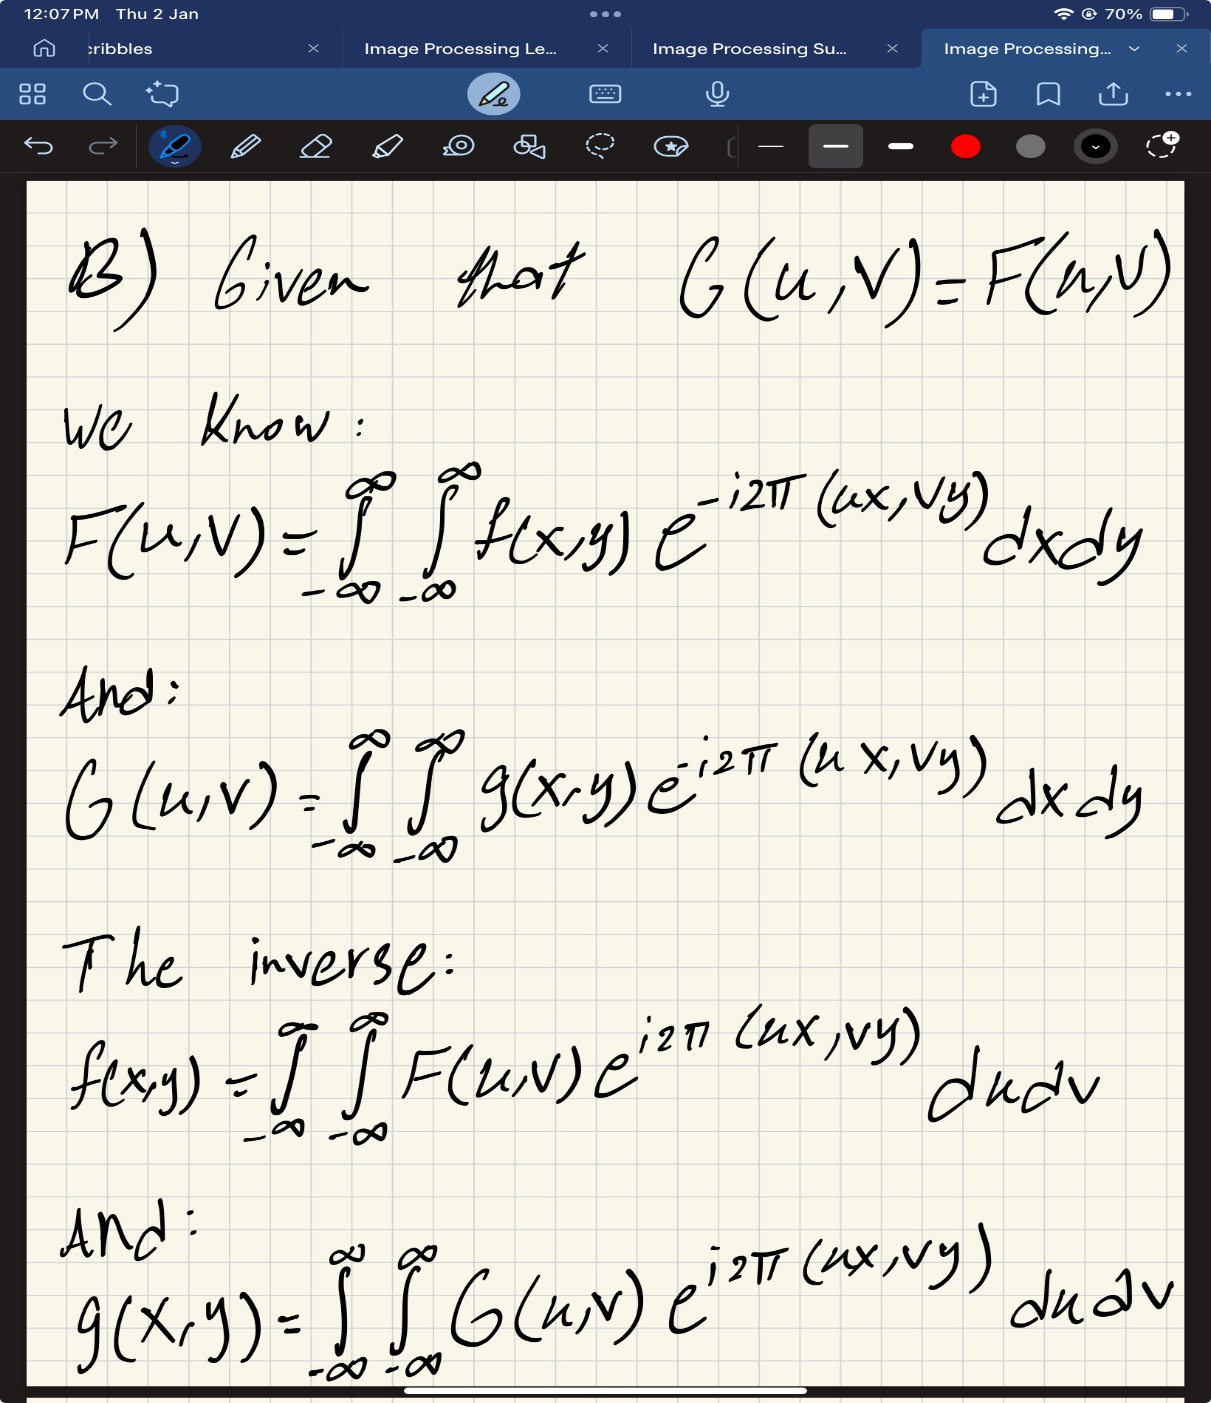 12:07 PM Thu 2 Jan
70%
cribbles
Image Processing Le...
Image Processing Su...
Image Processing...
B) Given that G(u,v)=F(u,v)
We Know:
F(u,v) = ∫_{-∞}^{∞} ∫_{-∞}^{∞} f(x,y) e^{-i2π(ux,vy)} dxdy
And:
G(u,v) = ∫_{-∞}^{∞} ∫_{-∞}^{∞} g(x,y) e^{-i2π(ux,vy)} dxdy
The inverse:
f(x,y) = ∫_{-∞}^{∞} ∫_{-∞}^{∞} F(u,v) e^{i2π(ux,vy)} dudv
And:
g(x,y) = ∫_{-∞}^{∞} ∫_{-∞}^{∞} G(u,v) e^{i2π(ux,vy)} dudv